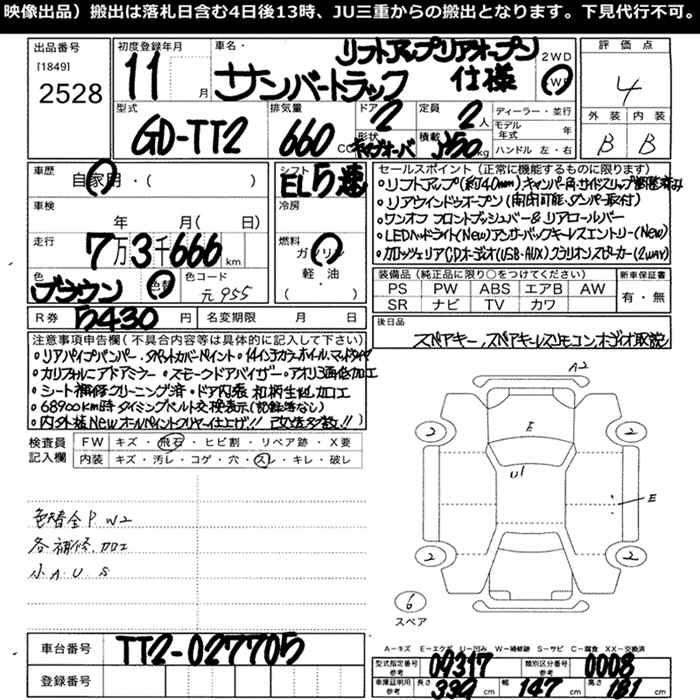 映像出品）搬出は落札日含む4日後13時、JU三重からの搬出となります。下見代行不可。
出品番号
[1849]
2528
初度登録年月
11月
車名・
リフトアップリアオープン
サンバートラック 仕様
2WD
4WD
評価点
4
外装 内装
B B
型式
GD-TT2
排気量
660 CC
ドア
2
定員
2人
形状
キャブオーバ
積載
350 kg
ディーラー・並行
モデル年式 年
ハンドル 左・右
車歴
自家用・( )
車検
年 月( 日)
走行
7万3千666km
色
ブラウン
色替
色コード
元955
シフト
EL5速
冷房
燃料
ガソリン
軽・油
( )
R券 5430円
名変期限 月 日
セールスポイント（正常に機能するものに限ります）
・リフトアップ(約40mm)キャンバー角・サイドスリップ調整済み
・リアウインドゥオープン(両開可能・ダンパー取付)
・ワンオフ フロントプッシュバー&リアロールバー
・LEDヘッドライト(New)アンサーバックキーレスエントリー(New)
・カロッツェリアCDオーディオ(USB・AUX)クラリオンスピーカー(2way)
装備品（純正品に限り○をつけてください）
PS PW ABS エアB AW
SR ナビ TV カワ
新車保証書
有・無
後日品
スペアキー、スペアキーレスリモコン、オーディオ取説
注意事項申告欄(不具合内容等は具体的に記入して下さい)
・リアパイプバンパー・タペットカバーペイント・14インチカラーホイール、マッドタイヤ
・カリフォルニアドアミラー・スモークドアバイザー・アオリ3面補修加工
・シート補修クリーニング済・ドア内張 和柄生地加工
・68900km時タイミングベルト交換表示(記録簿なし)
・内外装Newオールペイントクリヤー仕上げ!! 改造多数!!
検査員
記入欄
FW キズ・飛石・ヒビ割・リペア跡・X要
内装 キズ・汚レ・コゲ・穴・スレ・キレ・破レ
色替全P W2
各補修.加工
小A U S
A2
2
2
E
U1
E
2
2
6
スペア
A－キズ E－エクボ U－凹み W－補修跡 S－サビ C－腐食 XX－交換済
車台番号 TT2-027705
登録番号
型式指定番号
参考
09317
類別区分番号
参考
0008
車庫証明用
参考
長さ 339 cm 幅 147 cm 高さ 181 cm